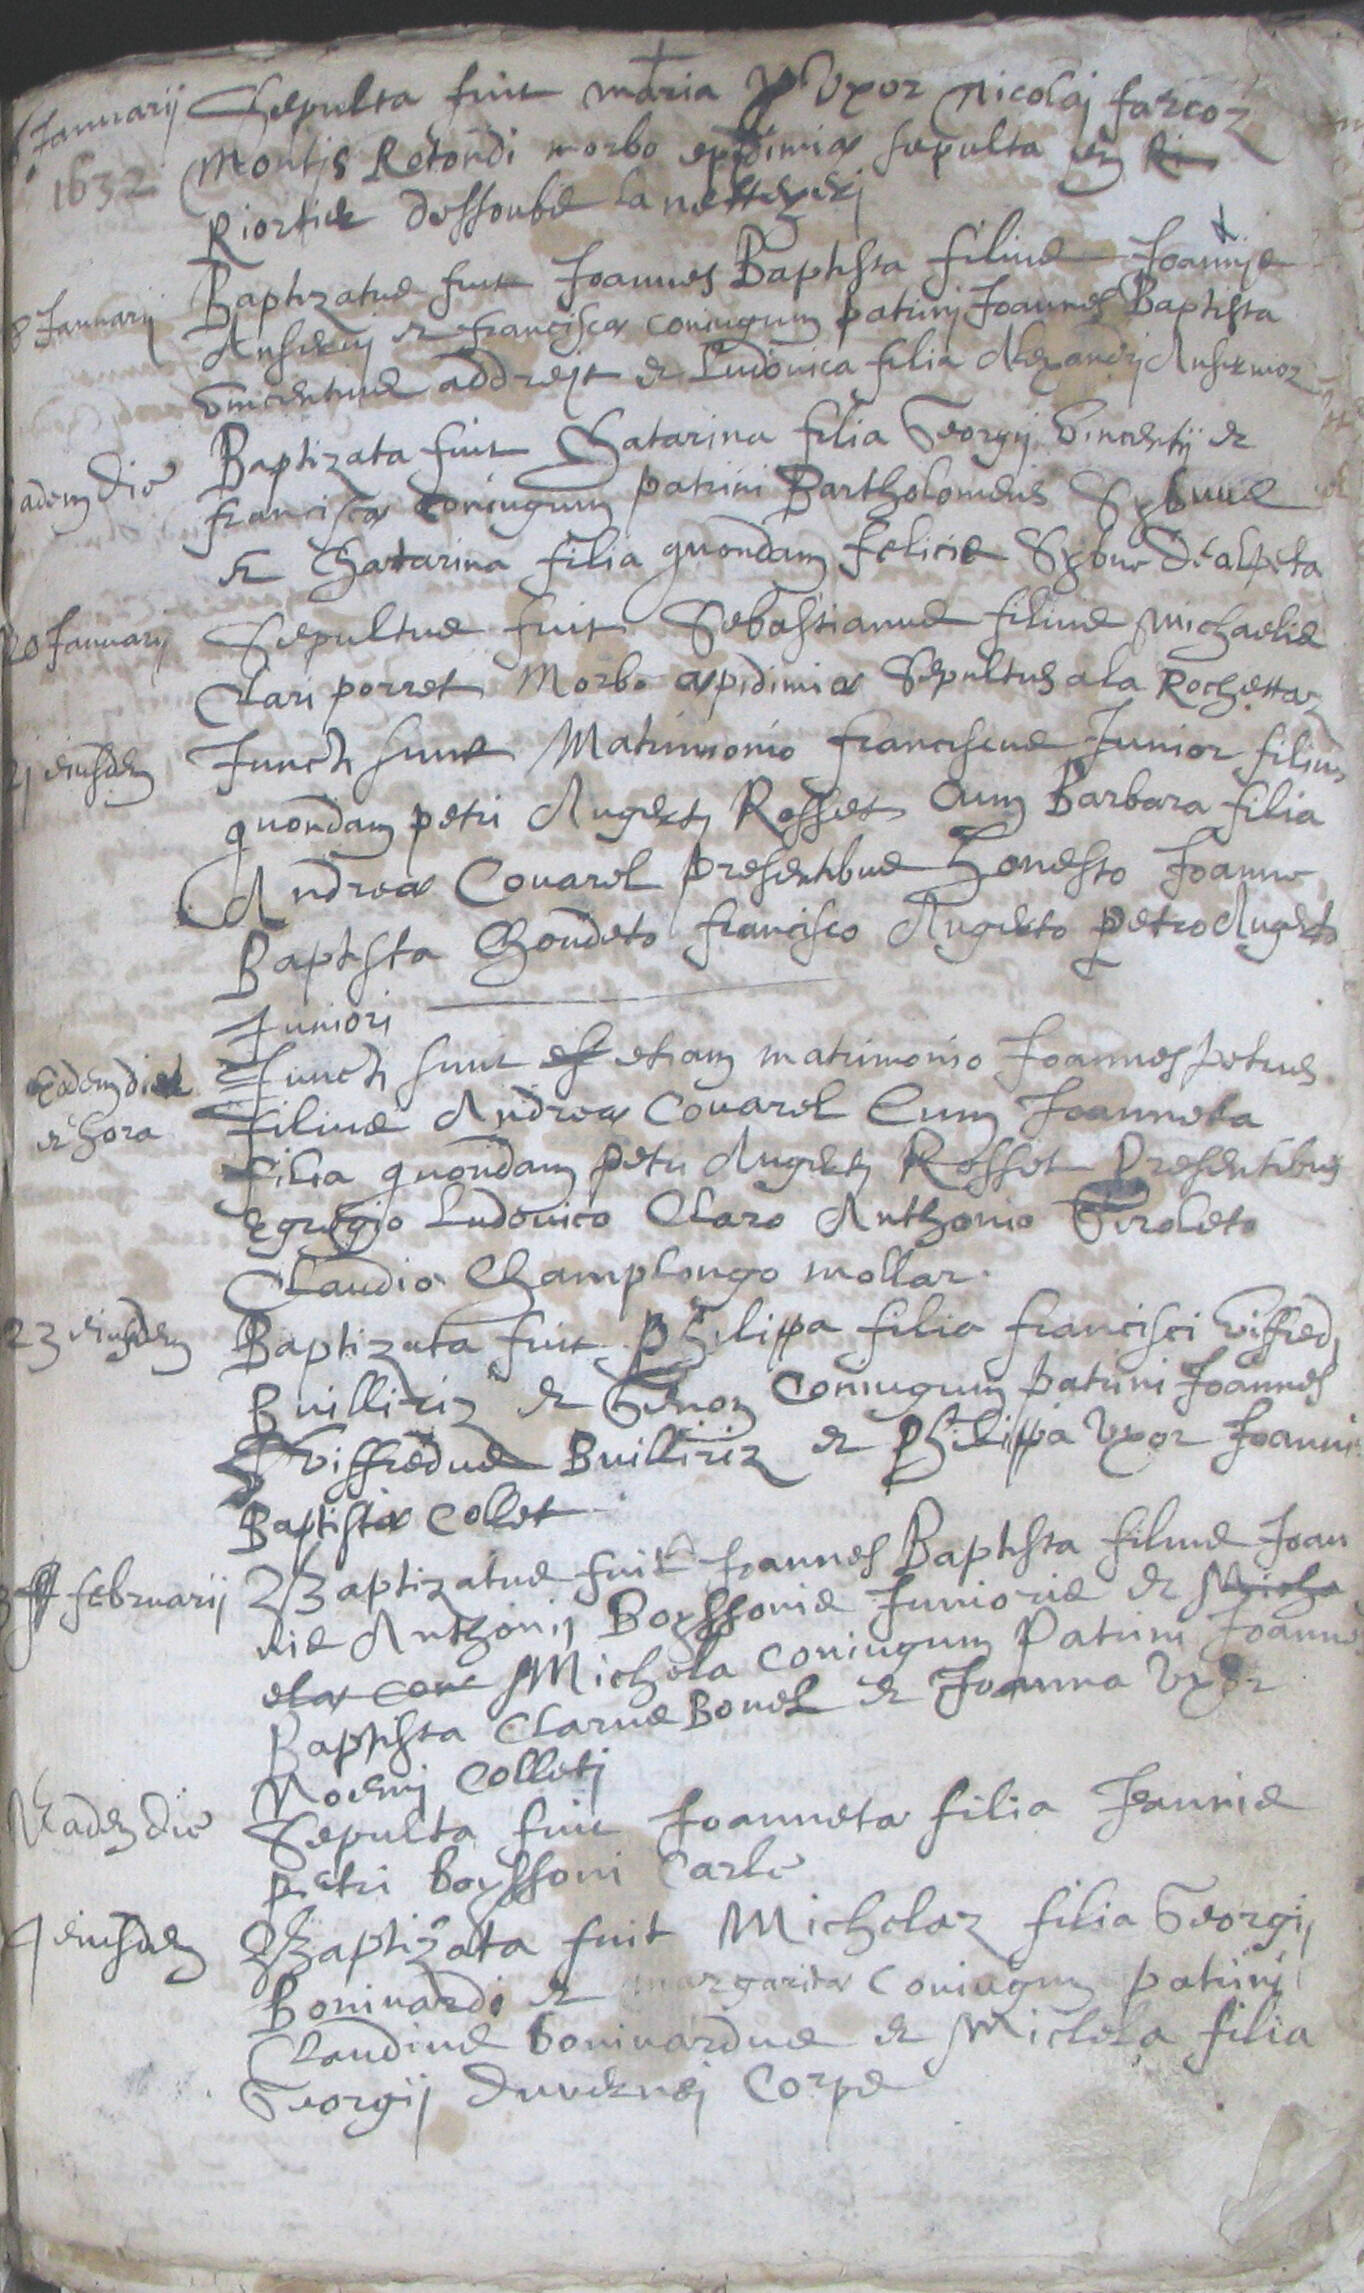 Januarij Sepulta fuit maria Uxor Nicolaj farcoz
1632 Montis Rotondi morbo epidimiæ sepulta en
Riortier dessoube la
8 Januarij Baptizatus fuit Joannes Baptista filius Joannis
Anselmj et franciscæ coniugum patrinj Joannes Baptista
Vincentius addrejt et Ludovica filia Alexandrj Anselmoz
eadem die Baptizata fuit Chatarina filia Georgij Vincentij et
franciscæ coniugum patrini Bartholomeus Sybuus
et Chatarina filia quondam felicis Sybue Dealpeta
20 Januarij Sepultus fuit Sebastianus filius Michaelis
Clari porret Morbo æpidimiæ Sepultus a la Rochettaz
21 eiusdem Juncti sunt Matrimonio franciscus Junior filius
quondam petri Augertj Rosset Cum Barbara filia
Andreæ Covarel presentibus honesto Joanne
Baptista Chondeto francisco Augerto petro Augerto
Juniori
Eadem die Juncti sunt etiam matrimonio Joannes petrus
et hora filius Andreæ Covarel Cum Joanneta
filia quondam petri Augertj Rosset Presentibus
egregio Ludovico Claro Anthonio Viroleto
Claudio Champlongo mollar
23 eiusdem Baptizata fuit Philippa filia francisci Viffredj
Builliriz et Genon Coniugum patrini Joannes
Viffredus Builliriz et Philippa Uxor Joannis
Baptistæ Collet
3 februarij Baptizatus fuit Joannes Baptista filius Joan
nis Anthonij Boyssonis Junioris et Micha
elæ con Michela coniugum Patrini Joannes
Baptista Clarus Bonel et Joanna Uxor
Noemj Colletj
Eadem die Sepulta fuit Joanneta filia Joannis
petri boyssoni Carle
4 eiusdem Baptizata fuit Michelaz filia Georgij
Boninardi et margaritæ Coniugum patrini
Claudius boninardus et Michela filia
Georgij Duvernej Corpe